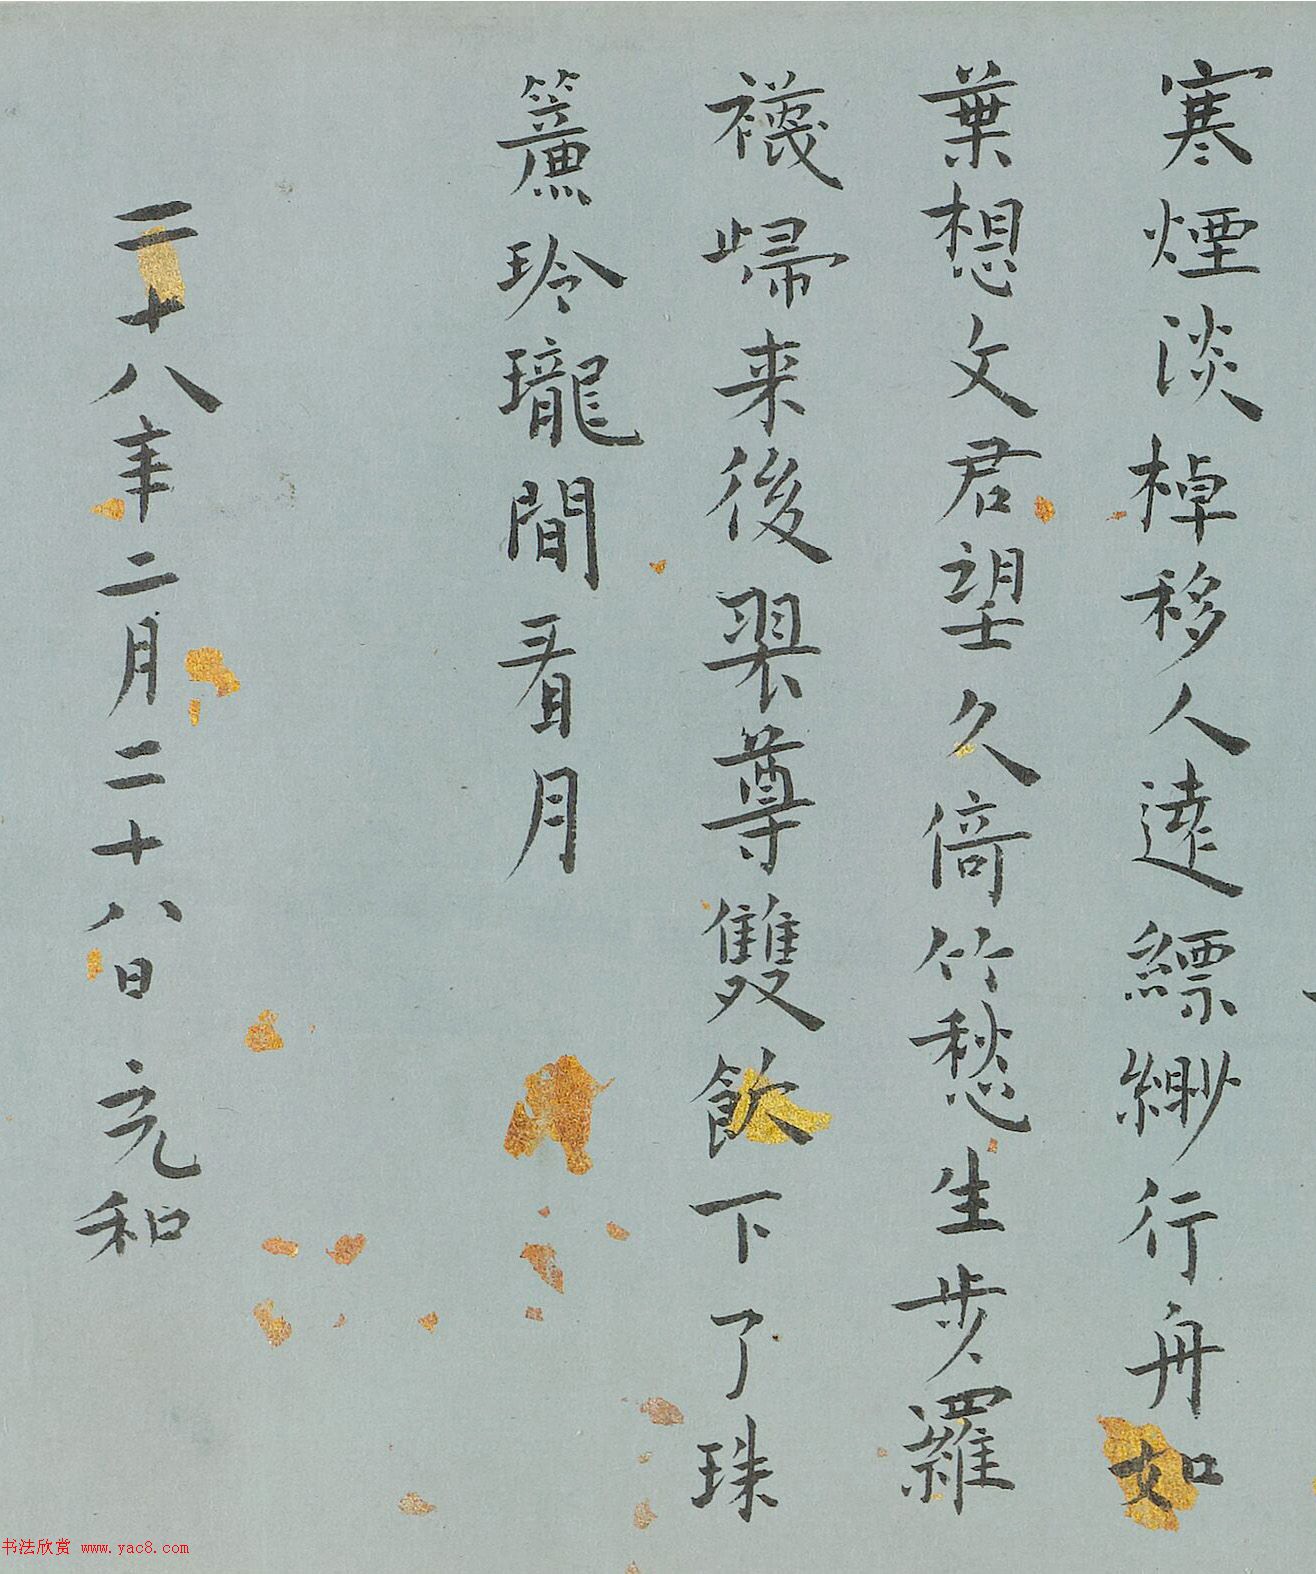 寒煙淡棹移人遠縹緲行舟如
葉想文君望久倚竹愁生步羅
襪歸来後翠尊雙飲下了珠
簾玲瓏間看月
二十八年二月二十八日 元和
书法欣赏 www.yac8.com